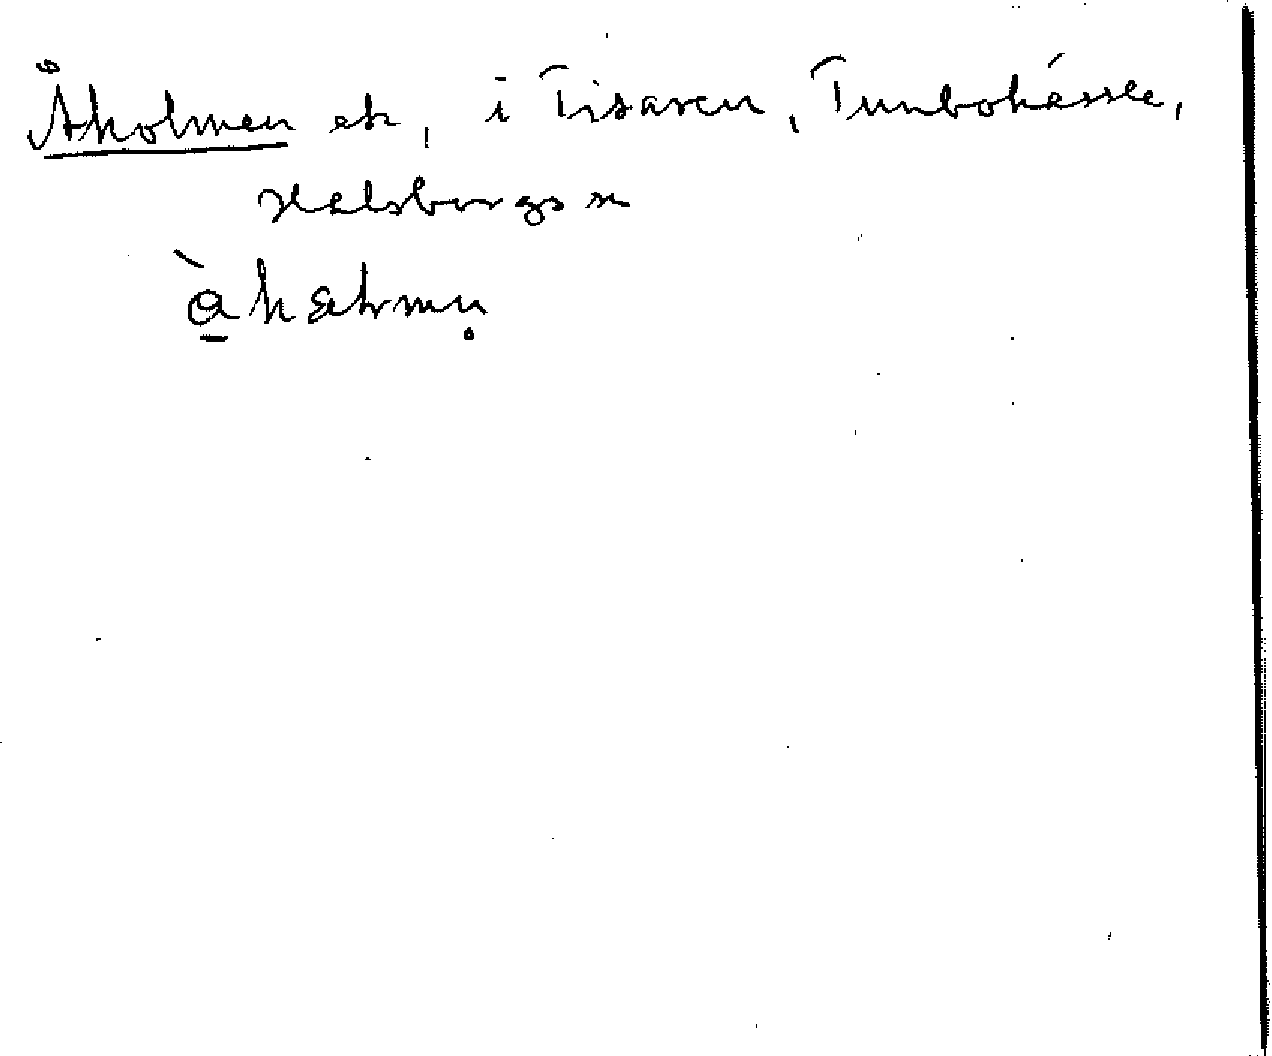 Åholmen ek, i Tisaren, Tunbohässle,
Halsbergs sn